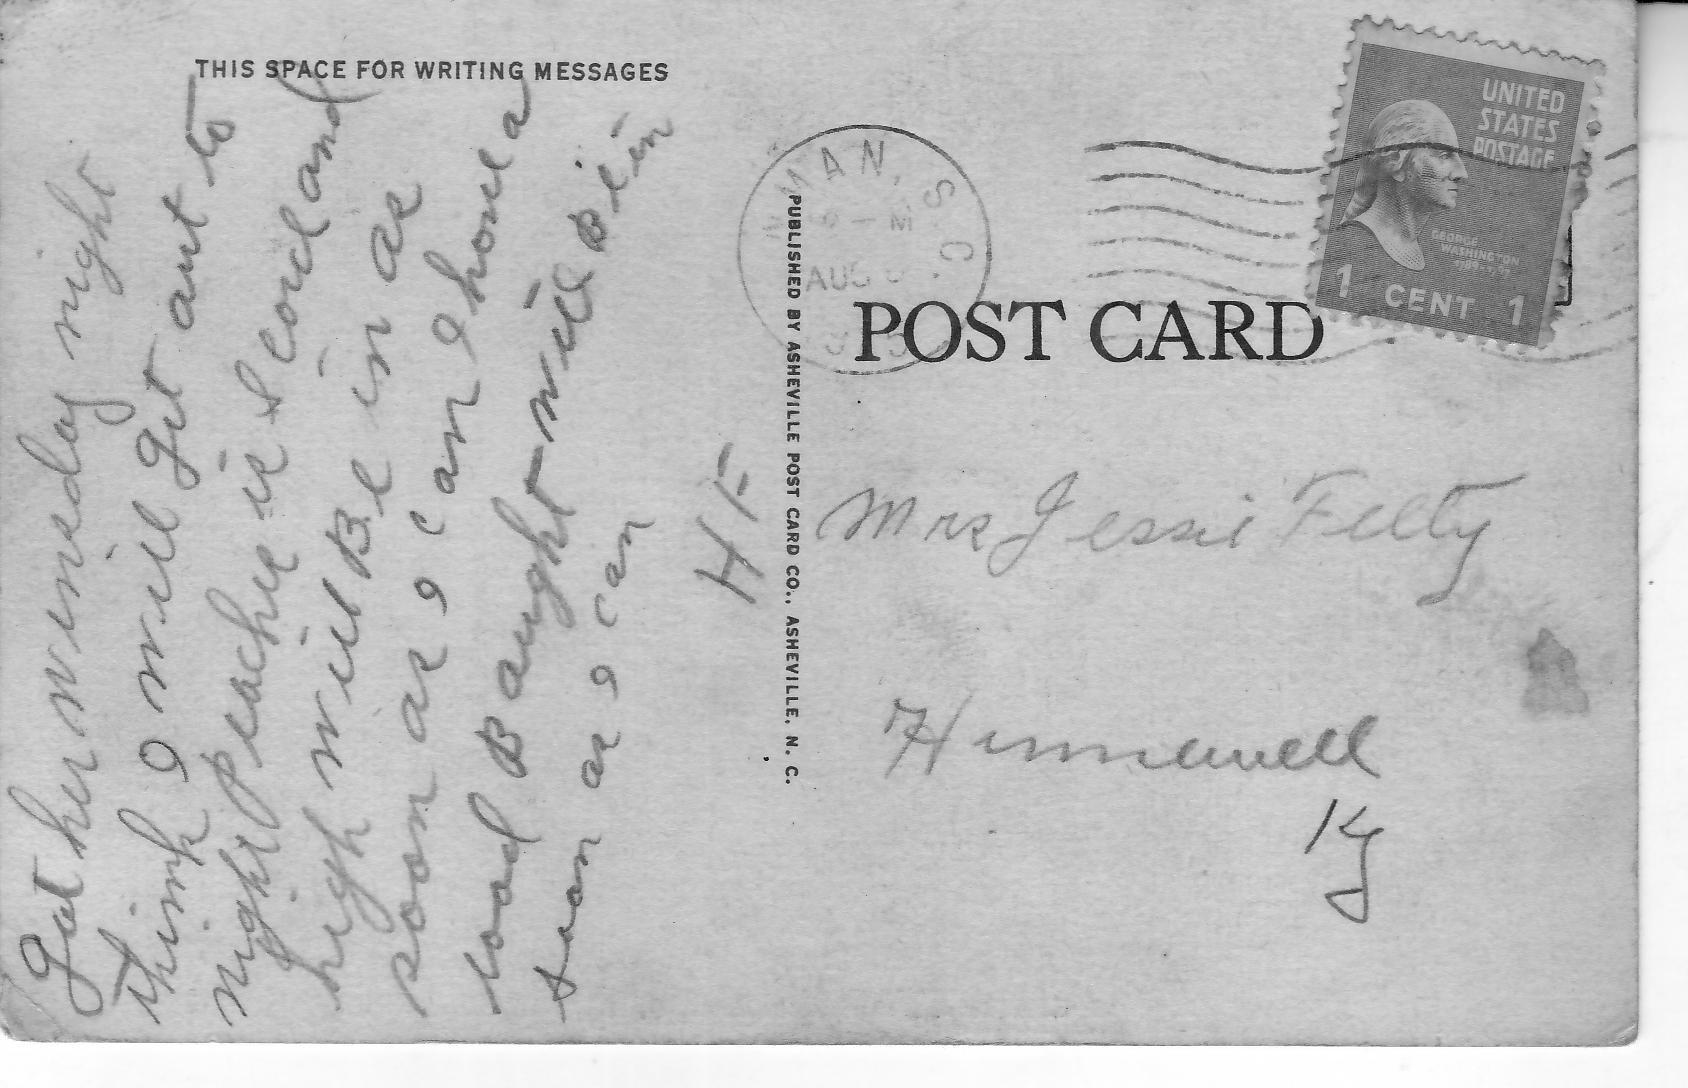 THIS SPACE FOR WRITING MESSAGES
got her wensday night
think I will get aut to
night Peaches is I coud and
high will Be in as
soon as I can I have a
load Baught will Be in
soon as I can
HF
PUBLISHED BY ASHEVILLE POST CARD CO., ASHEVILLE, N. C.
MAN, S. C.
AUG
POST CARD
UNITED
STATES
POSTAGE
GEORGE
WASHINGTON
1789-1797
1 CENT 1
Mrs Jessie Felty
Hunnewell
Ky